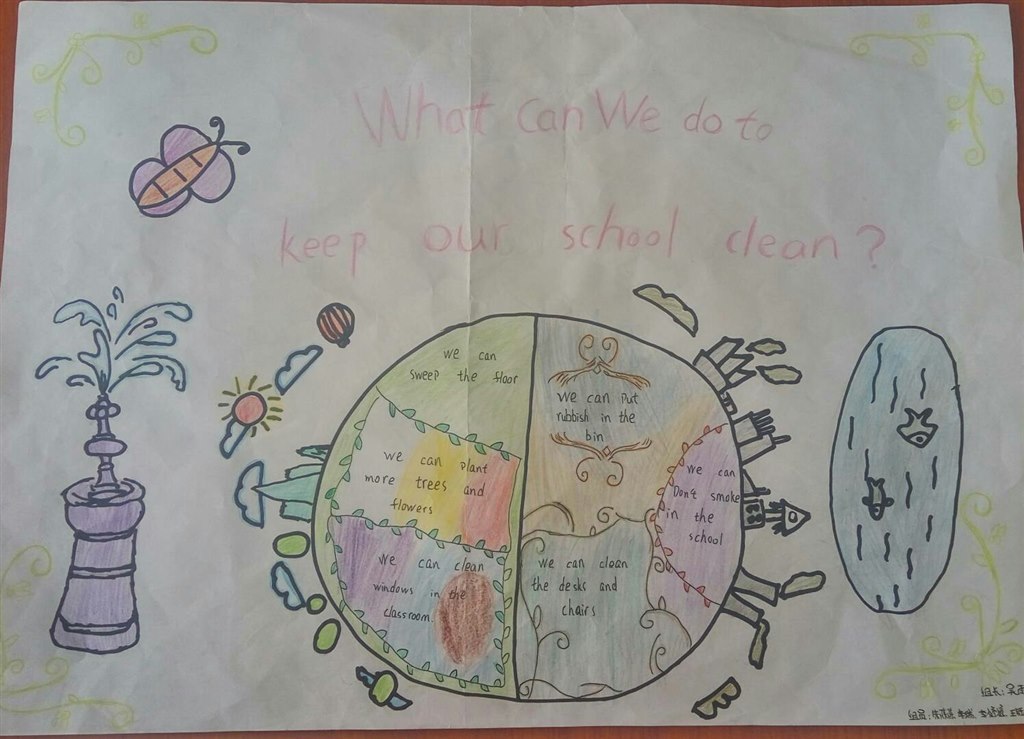 What Can We do to
keep our school clean?
we can
sweep the floor
we can plant
more trees and
flowers
We can clean
windows in the
classroom.
we can put
rubbish in the
bin
we can
Don't smoke
in the
school
we can clean
the desks and
chairs
组长:
组员: